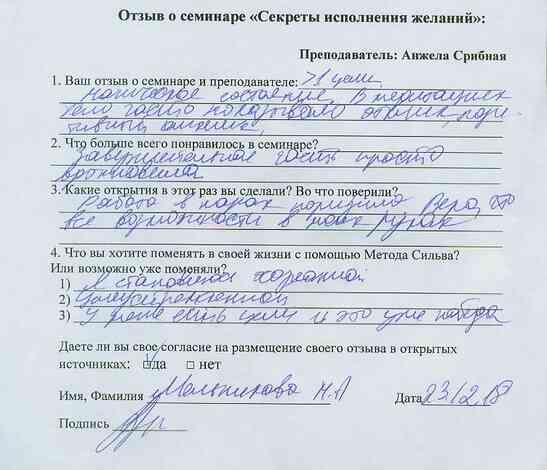 Отзыв о семинаре «Секреты исполнения желаний»:
Преподаватель: Анжела Срибная
1. Ваш отзыв о семинаре и преподавателе:
состояние, В медитациях
тело
2. Что больше всего понравилось в семинаре?
Завершительная часть просто
вдохновенна
3. Какие открытия в этот раз вы сделали? Во что поверили?
Работа в парах Вера, что
все возможности в моих руках
4. Что вы хотите поменять в своей жизни с помощью Метода Сильва?
Или возможно уже поменяли?
1) Я становлюсь
2) Целеустремленной
3) У меня есть цели и это уже победа
Даете ли вы свое согласие на размещение своего отзыва в открытых
источниках: да нет
Имя, Фамилия Мельникова Н.А Дата 23.12.18
Подпись